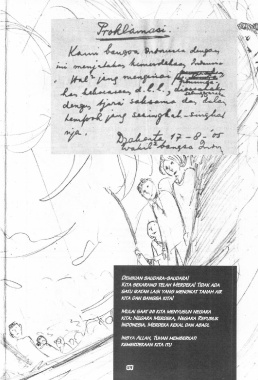 Proklamasi.
Kami bangsa Indonesia dengan
ini menjatakan kemerdekaan Indonesia.
Hal² jang mengenai
kekoeasaan d.l.l.,
dengan tjara saksama dan dalam
tempoh jang sesingkat-singkat
nja.
Djakarta 17-8-'05
Wakil² bangsa Indon
DEMIKIAN SAUDARA-SAUDARA!
KITA SEKARANG TELAH MERDEKA! TIDAK ADA
SATU IKATAN LAGI YANG MENGIKAT TANAH AIR
KITA DAN BANGSA KITA!
MULAI SAAT INI KITA MENYUSUN NEGARA
KITA: NEGARA MERDEKA, NEGARA REPUBLIK
INDONESIA, MERDEKA KEKAL DAN ABADI.
INSYA ALLAH, TUHAN MEMBERKATI
KEMERDEKAAN KITA ITU